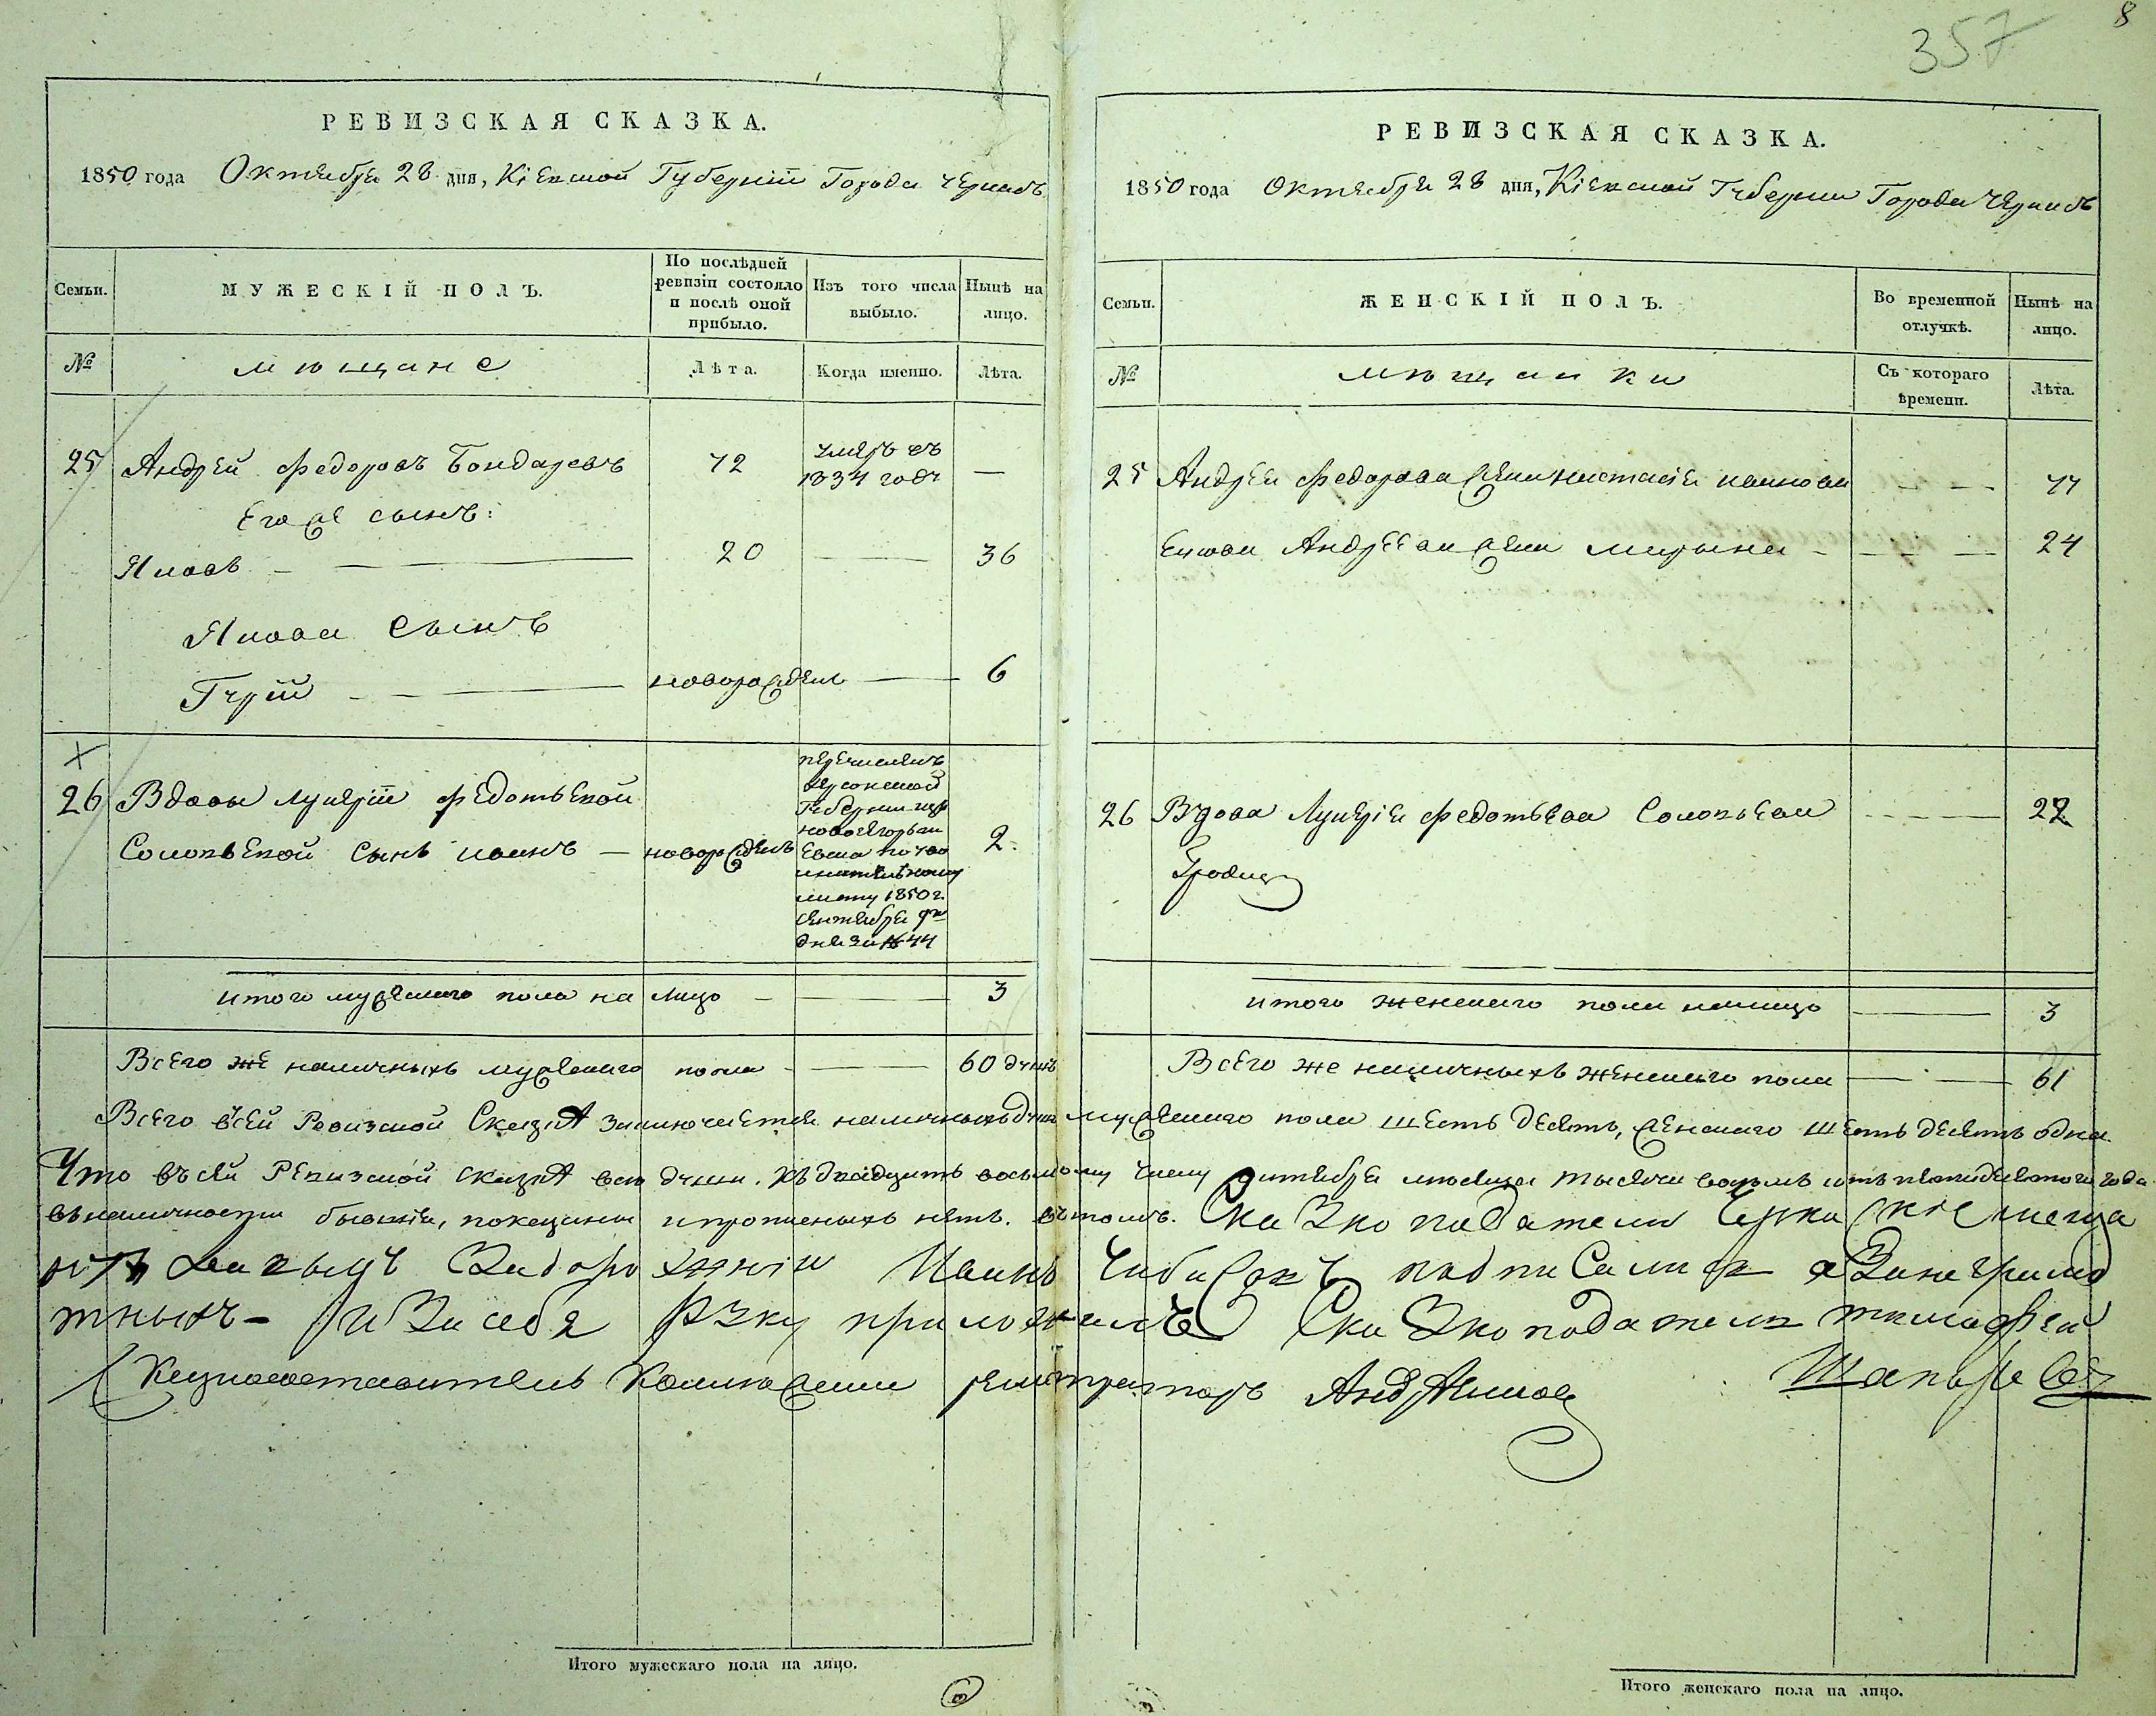 357
8
РЕВИЗСКАЯ СКАЗКА.
1850 года Октября 28 дня, Кіевской Губерніи Города Черкасъ
Семьи.
МУЖЕСКІЙ ПОЛЪ.
По послѣдней ревизіи состояло и послѣ оной прибыло.
Изъ того числа выбыло.
Нынѣ на лицо.
№
мѣщане
Лѣта.
Когда именно.
Лѣта.
25 Андрей Федоровъ Бондаревъ 72 умеръ въ 1834 году —
Его же сынъ:
Яковъ 20 — 36
Якова сынъ
Гурій новорожденъ — 6
26 Вдовы Лукеріи Федотьевой
Солопьевой сынъ Иванъ — новорожденъ 2.
перечисленъ
Херсонской
Губерніи изъ
новогеоргіи
евска по увo
листу 1850 г.
сентября
дня за № 44
итого мужескаго пола на лицо — 3
Всего же наличныхъ мужескаго пола — 60 душъ
РЕВИЗСКАЯ СКАЗКА.
1850 года Октября 28 дня, Кіевской Губерніи Города Черкасъ
Семьи.
ЖЕНСКІЙ ПОЛЪ.
Во временной отлучкѣ.
Нынѣ на лицо.
№
мѣщанки
Съ котораго времени.
Лѣта.
25 Андрея Федорова жена Настасія Иванова — 77
Якова Андреева жена Марьяна — 24
26 Вдова Лукерія Федотьева Солопьева — 22
итого женскаго пола налицо — 3
Всего же наличныхъ женскаго пола — 61
Всего всей Ревизской Сказкѣ заключается наличныхъ душъ мужескаго пола шесть десять, женскаго шесть десять одна.
Что въ сей Ревизской сказкѣ всѣ души. къ двадцать восьмому числу октября мѣсяца тысяча восемь сотъ пятидесятого года
въ наличности бывшія, показаны и прописныхъ нетъ. въ томъ. Сказко податели Черкаскіе меща
Задорожній Иванъ подписались а за неграмо
тныхъ и за себя руку приложилъ Сказко податель тимофей
Сказкосоставитель Коллежскій регистраторъ
Итого мужескаго пола на лицо.
Итого женскаго пола на лицо.